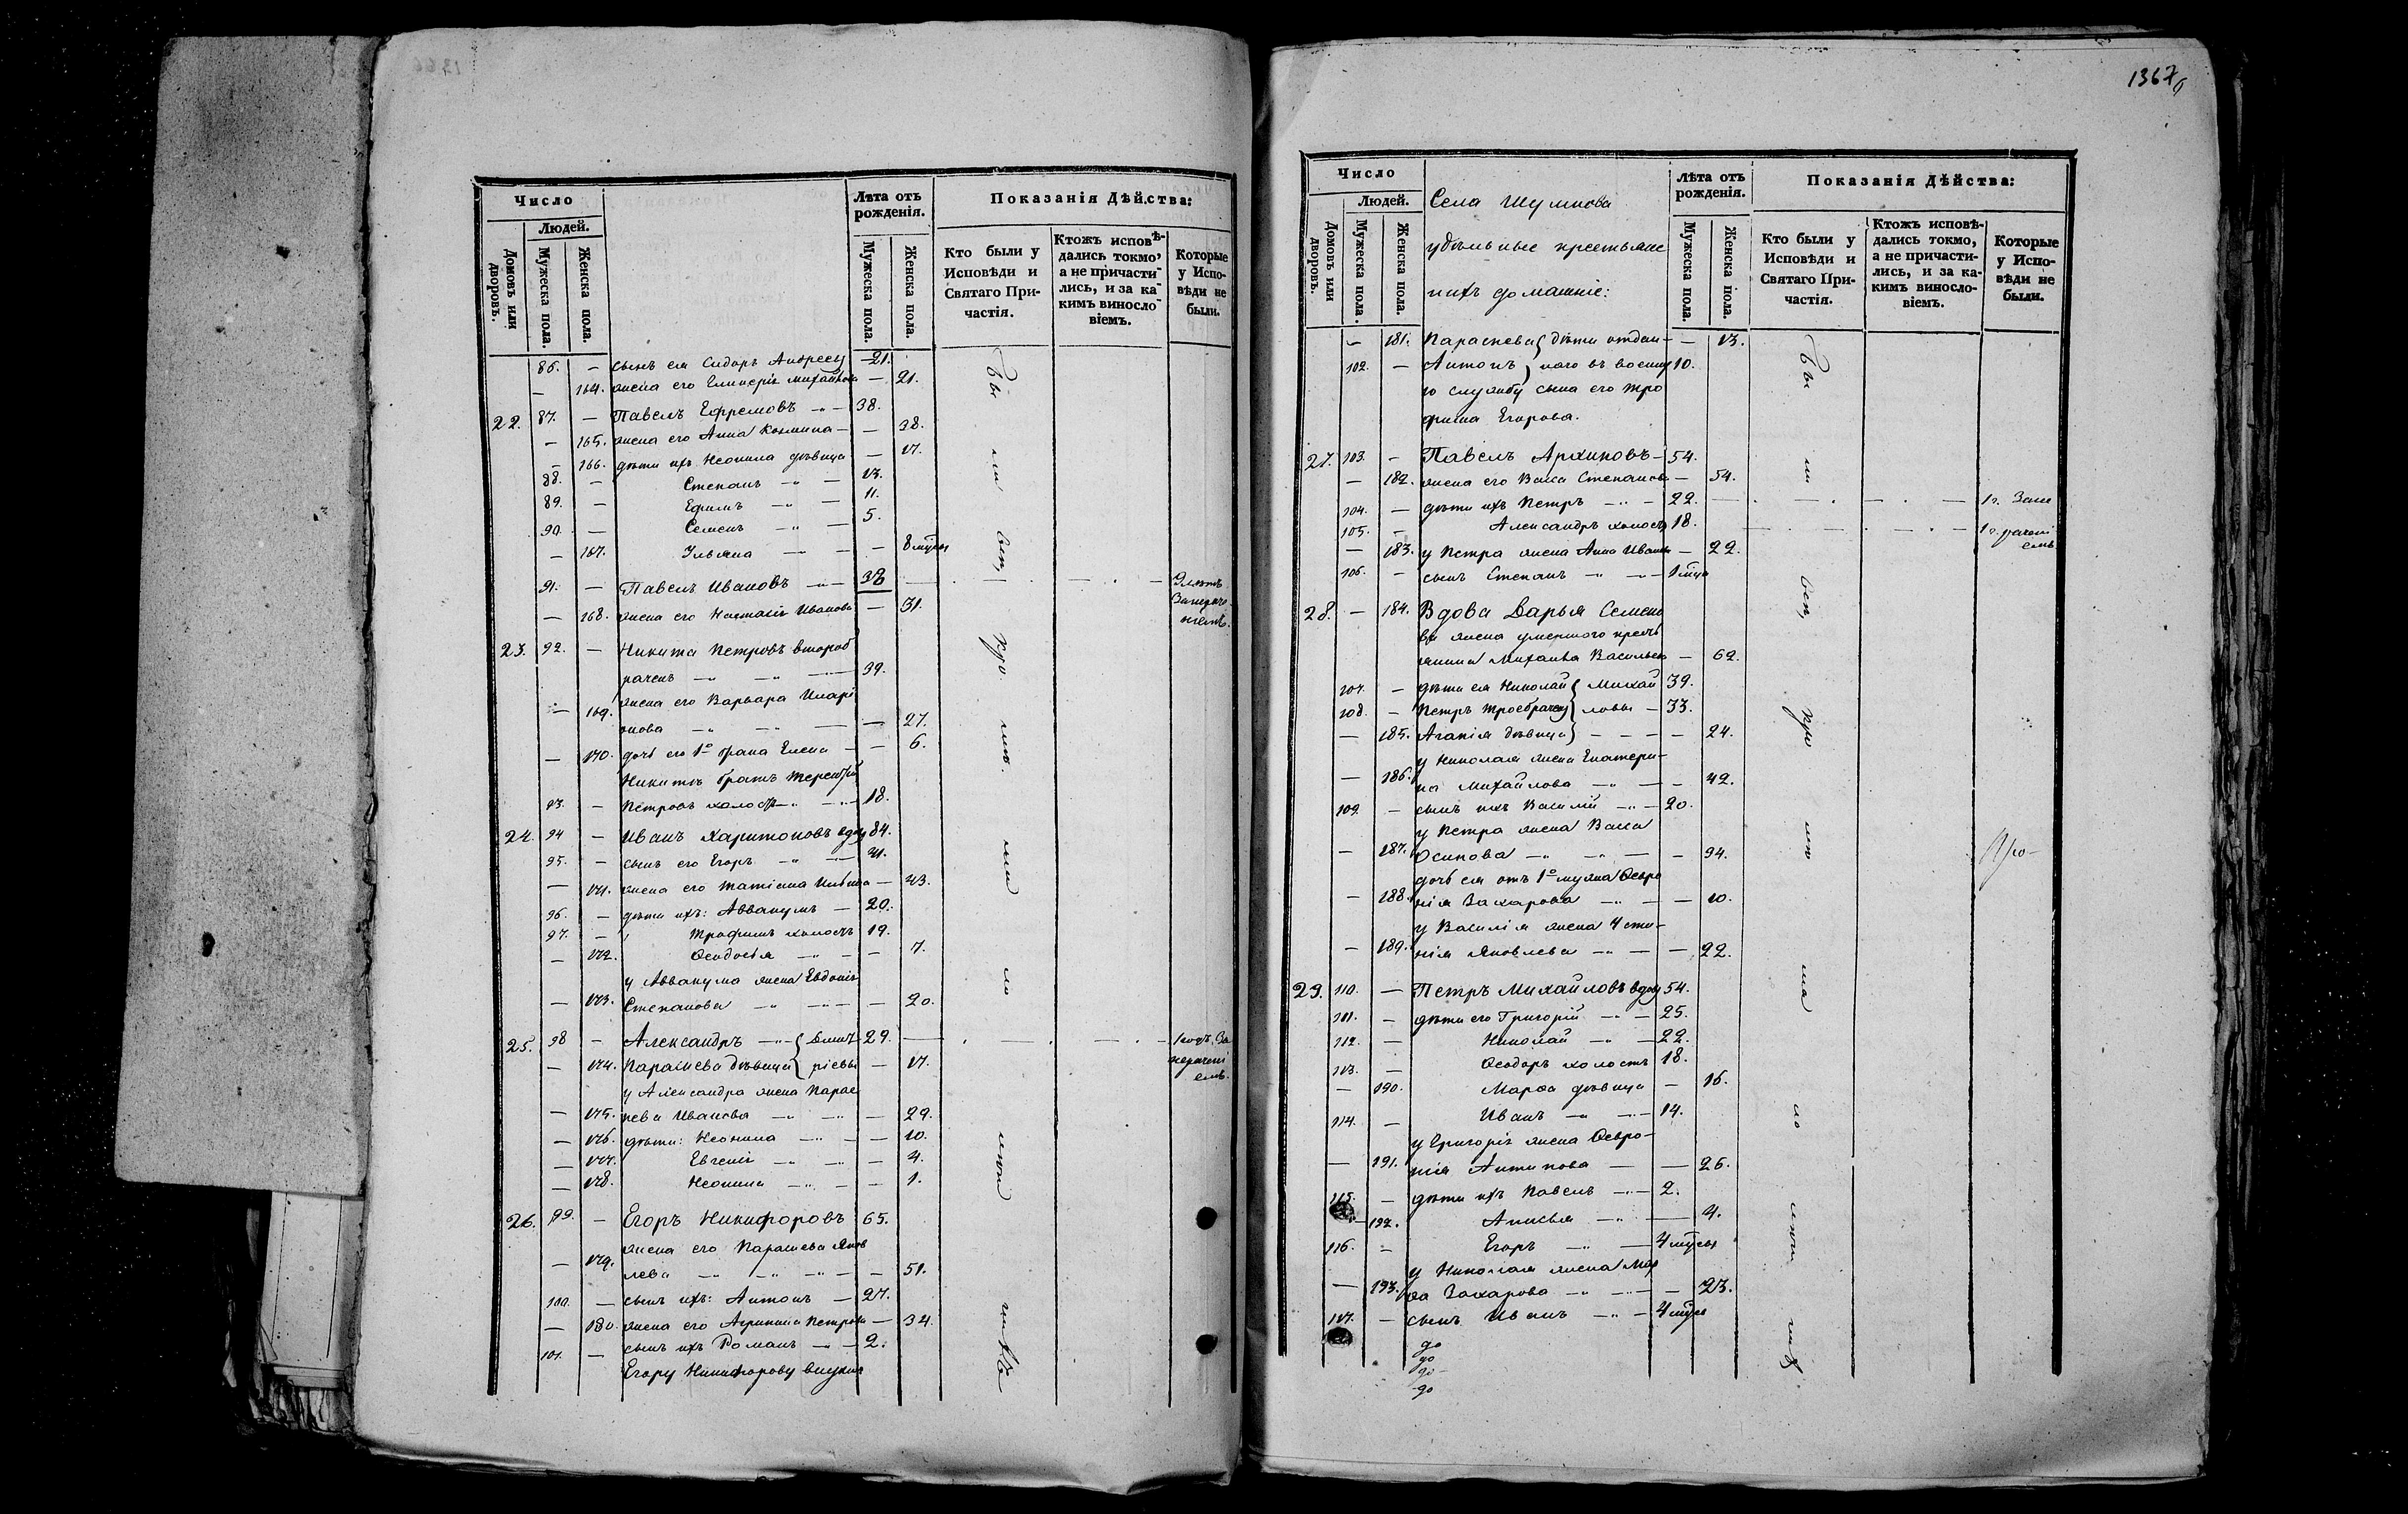 Число
Людей.
Домовъ или дворовъ.
Мужеска пола.
Женска пола.
Лѣта отъ рожденія.
Мужеска пола.
Женска пола.
Показанія Дѣйства:
Кто были у Исповѣди и Святаго Причастія.
Ктожъ исповѣдались токмо, а не причастились, и за какимъ винословіемъ.
Которые у Исповѣди не были.
86. — сынъ ея Сидоръ Андреевъ — 21.
— 164. жена его Гликерія Михайлова — 21.
22. 87. — Павелъ Ефремовъ — 38.
— 165. жена его Анна Козмина — — 38.
— 166. дѣти ихъ Неонила дѣвица — 17.
88. — Степанъ — 13.
89. — Ефимъ — 11.
90. — Семенъ — 5.
— 167. Ульяна — — 8 мѣсяц
91. — Павелъ Ивановъ — 32
— 168. жена его Настасія Иванова — 31.
23. 92. — Никита Петровъ второб
рачень — 39.
— 169. жена его Варвара Илларі
онова — — 27.
— 170. дочь его 1го брака Елена — — 6.
Никитѣ братъ Терентій
93. — Петровъ холостъ — 18.
24. 94 — Иванъ Харитоновъ вдов 84.
95. — сынъ его Егоръ — 41.
— 171. жена его Татіана Ильина — 43.
96. — дѣти ихъ: Аввакумъ — 20.
97. — Трофимъ холостъ 19.
— 172. Ѳеодосья — — 7.
у Аввакума жена Евдокія
— 173. Степанова — — 20.
25. 98 — Александръ — 29. 1 годъ За
— 174. Параскева дѣвица — 17. нерачені
емъ.
у Александра жена Парас
— 175. кева Иванова — — 29.
— 176. дѣти: Неонила — — 10.
— 177. Евгенія — — 4.
— 178. Неонила — — 1.
26. 99. — Егоръ Никифоровъ 65.
жена его Параскева Яков
— 179. лева — — 51.
100. — сынъ ихъ: Антонъ — 27.
— 180. жена его Агрипина Петрова — 34.
101. — сынъ ихъ Романъ — 2.
Егору Никифорову внуки
1367
Число
Людей.
Домовъ или дворовъ.
Мужеска пола.
Женска пола.
Села Шумкова
удѣльные крестьяне
и ихъ домашніе:
Лѣта отъ рожденія.
Мужеска пола.
Женска пола.
Показанія Дѣйства:
Кто были у Исповѣди и Святаго Причастія.
Ктожъ исповѣдались токмо, а не причастились, и за какимъ винословіемъ.
Которые у Исповѣди не были.
— 181. Параскева дѣти отдан- — 13.
102. — Антонъ наго въ военну 10.
ю службу сына его Тро
фима Егорова.
27. 103. — Павелъ Архиповъ — 54.
— 182. жена его Васса Степанова — 54.
104. — дѣти ихъ Петръ — 22. 1 г. Зане
105. — Александръ холостъ 18. 1 г. рачені
емъ
— 183. у Петра жена Анна Иванова — 22.
106. — сынъ Степанъ — 1 мѣця
28. — 184. Вдова Дарья Семено
ва жена умершаго кресть
янина Михаила Васильева — 62.
107. — дѣти ея Николай Михай 39.
108. — Петръ троебрачен ловы — 33.
— 185. Агапія дѣвица — — 24.
у Николая жена Екатери-
— 186. на Михайлова — — 42.
109. — сынъ ихъ Василій — 20.
у Петра жена Васса
— 187. Осипова — — 34.
дочь ея отъ 1го мужа Ѳевро
— 188. нія Захарова — — 10.
у Василія жена Усти-
— 189. нія Яковлева — — 22.
29. 110. — Петръ Михайловъ вдов 54.
111. — дѣти его Григорій — 25.
112. — Николай — 22.
113. — Ѳеодоръ холостъ 18.
— 190. Марѳа дѣвица — 16.
114. — Иванъ — 14.
у Григорія жена Ѳевро-
— 191. нія Антипова — — 26.
115. — дѣти ихъ Павелъ — 2.
— 192. Анисья — 4.
116. — Егоръ — 4 мѣсяц
у Николая жена Мар
— 193. ѳа Захарова — — 23.
117. — сынъ Иванъ — 4 мѣсяц
до
до
до
до